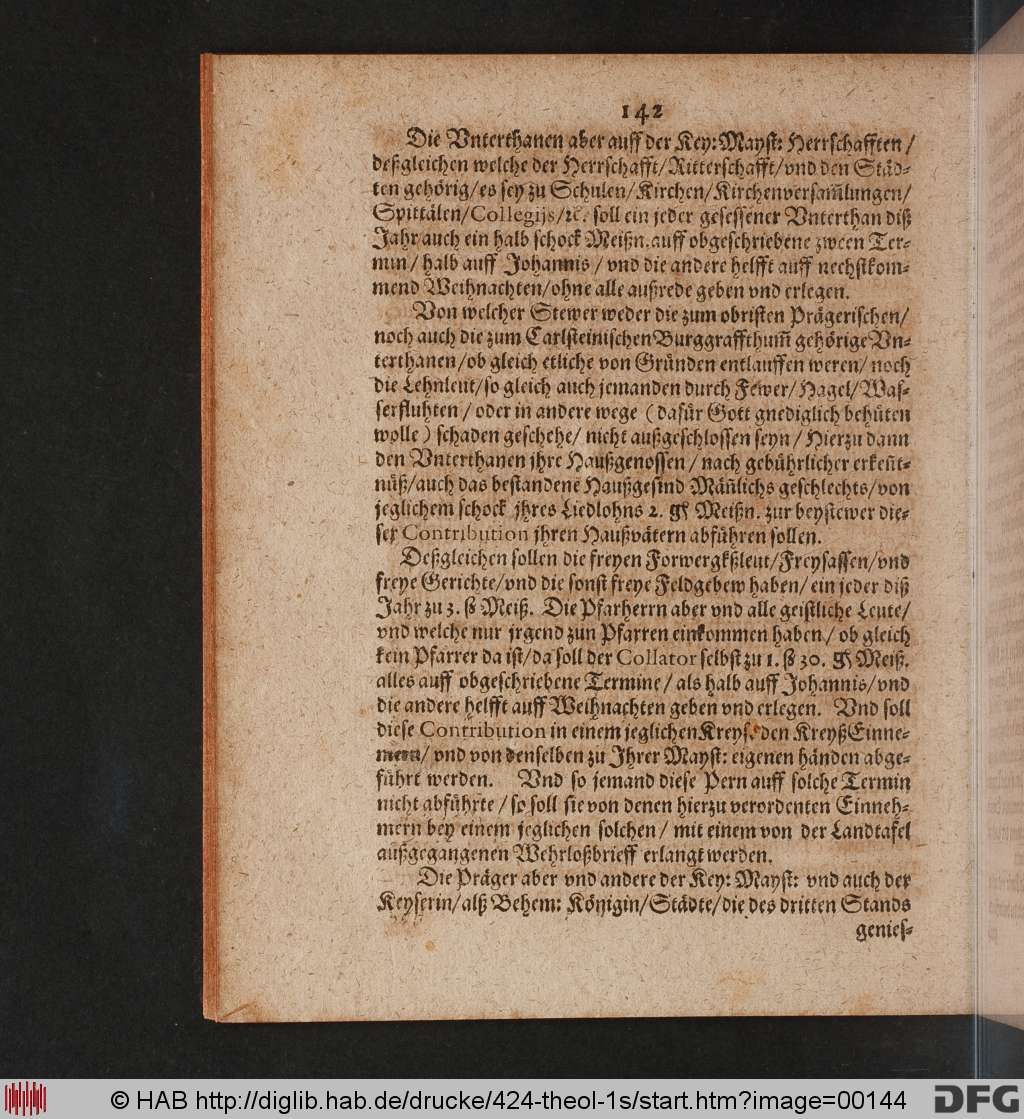 142
Die Vnterthanen aber auff der Key: Mayst: Herrschafften /
deßgleichen welche der Herrschafft/ Ritterschafft/ vnd den Städ-
ten gehörig/ es sey zu Schulen/ Kirchen/ Kirchenversam̃lungen/
Spittälen/ Collegijs/ ꝛc. soll ein jeder gesessener Vnterthan diß
Jahr auch ein halb schock Meißn. auff obgeschriebene zween Ter-
min/ halb auff Johannis / vnd die andere helfft auff nechstkom-
mend Weihnachten/ ohne alle außrede geben vnd erlegen.
Von welcher Stewer weder die zum obristen Prägerischen/
noch auch die zum Carlsteinischen Burggraffthum̃ gehörige Vn-
terthanen/ ob gleich etliche von Gründen entlauffen weren/ noch
die Lehnleut/ so gleich auch jemanden durch Fewer/ Hagel/ Was-
serfluhten / oder in andere wege ( dafür Gott gnediglich behüten
wolle ) schaden geschehe/ nicht außgeschlossen seyn / Hierzu dann
den Vnterthanen jhre Haußgenossen / nach gebührlicher erkeñt-
nüß/ auch das bestandene Haußgesind Mäñlichs geschlechts/ von
jeglichem schock jhres Liedlohns 2. gℓ Meißn. zur beystewer die-
ser Contribution jhren Haußvätern abführen sollen.
Deßgleichen sollen die freyen Forwergkßleut/ Freysassen/ vnd
freye Gerichte/ vnd die sonst freye Feldgebew haben/ ein jeder diß
Jahr zu 3. ß Meiß. Die Pfarherrn aber vnd alle geistliche Leute/
vnd welche nur jrgend zun Pfarren einkommen haben/ ob gleich
kein Pfarrer da ist/ da soll der Collator selbst zu 1. ß 30. gℓ Meiß.
alles auff obgeschriebene Termine / als halb auff Johannis/ vnd
die andere helfft auff Weihnachten geben vnd erlegen. Vnd soll
diese Contribution in einem jeglichen Kreyse den Kreyß Einne-
mern/ vnd von denselben zu Jhrer Mayst: eigenen händen abge-
führt werden. Vnd so jemand diese Pern auff solche Termin
nicht abführte / so soll sie von denen hierzu verordenten Einneh-
mern bey einem jeglichen solchen / mit einem von der Landtafel
außgegangenen Wehrloßbrieff erlangt werden.
Die Präger aber vnd andere der Key: Mayst: vnd auch der
Keyserin/ alß Behem: Königin/ Städte/ die des dritten Stands
genies-
© HAB http://diglib.hab.de/drucke/424-theol-1s/start.htm?image=00144
DFG